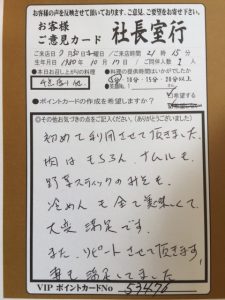 お客様の声を反映させて頂いております。ご意見、ご要望をお寄せ下さい。
お客様
ご意見カード
社長室行
ご来店日
月
日
曜日/ご来店時間 21時15分
生年月日
1980年10月17日/ご同伴人数
人
●本日お召し上がりの料理
●料理の提供時間はいかがでしたか
10分・15分・20分以上
●ポイントカードの作成を希望しますか?
◎その他お気づきの点をご記入ください。(ありがとうございました)
初めて利用させて頂きました。
肉はもちろん、ナムルも、
野菜スティックのみそも、
冷めんも全て美味しくて
大変満足です。
また、リピートさせて頂きます。
妻も満足してました
VIP ポイントカードNo 53476